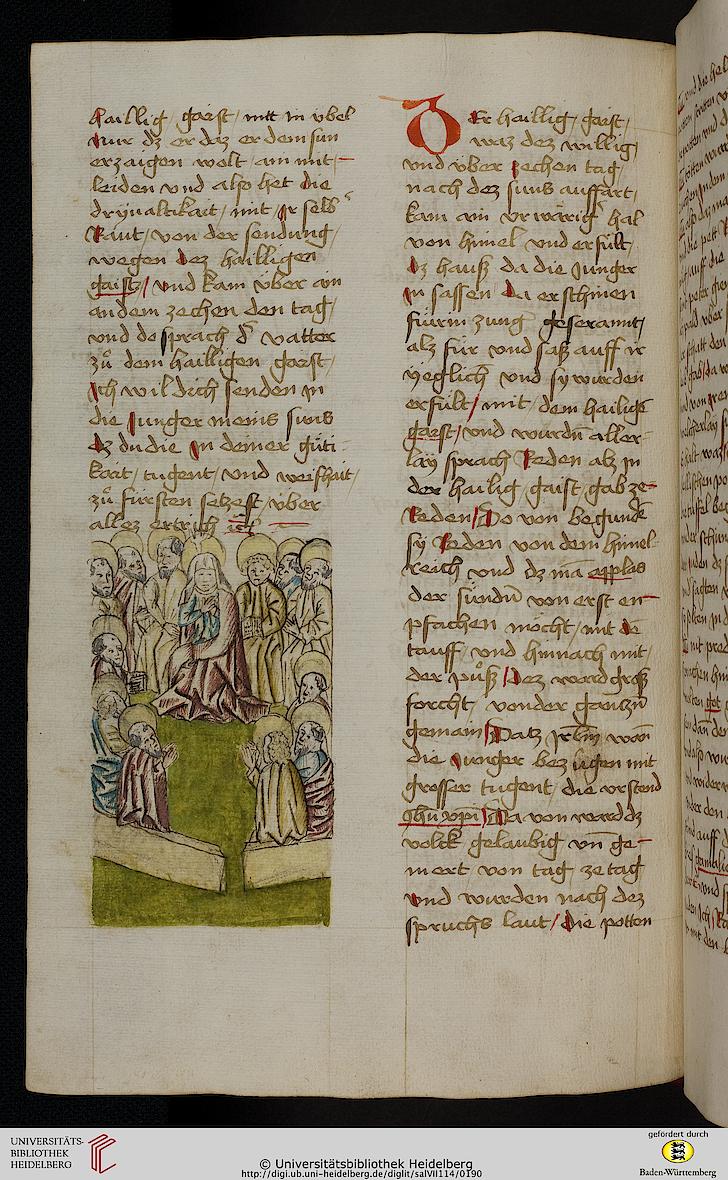 haillig gaist mit in übel
nur dz er daz er dem sun
erzaigen wolt ain mit-
leiden vnd also het die
drÿualtikait mit ir selb
Raut von der sendung
wegen dez hailligen
gaistz vnd kam über ain
an dem zechen den tag
vnd do sprach der vatter
zů dem hailligen gaist
Ich wil dich senden in
die Junger meins suns
dz du die in deiner güti-
kait tugent vnd weishait
zů fürsten setzest über
allez ertrich
DEr haillig gaist
waz dez willig
vnd über zechen tag
nach dez suns auffart
kam ain vrwärig hal
von himel vnd erfült
dz hauß da die Junger
in sassen da erschinen
fürin zung
alz für vnd saß auff ir
yeglich vnd sy wurden
erfült mit dem hailigē
gaist vnd wurdn̄ aller-
laÿ sprach Reden alz in
der hailig gaist gab ze
Reden Do von begundē
sÿ Reden von dem himel-
reich vnd dz mā applas
der sündn̄ von erst en-
pfachen möcht mit dē
tauff vnd hinnach mit
der půß Dez ward groß
forcht vonder gantzn̄
gemain Datz Jrlm̄ wan̄
die Junger bezügen mit
grosser tugent die vrstend
ihū xpi Da von ward dz
volck gelaubig vn̄ ge-
mert von tag ze tag
vnd wurden nach dez
spruchs laut die potten
UNIVERSITÄTS-
BIBLIOTHEK
HEIDELBERG
© Universitätsbibliothek Heidelberg
http://digi.ub.uni-heidelberg.de/diglit/salVII114/0190
gefördert durch
Baden-Württemberg